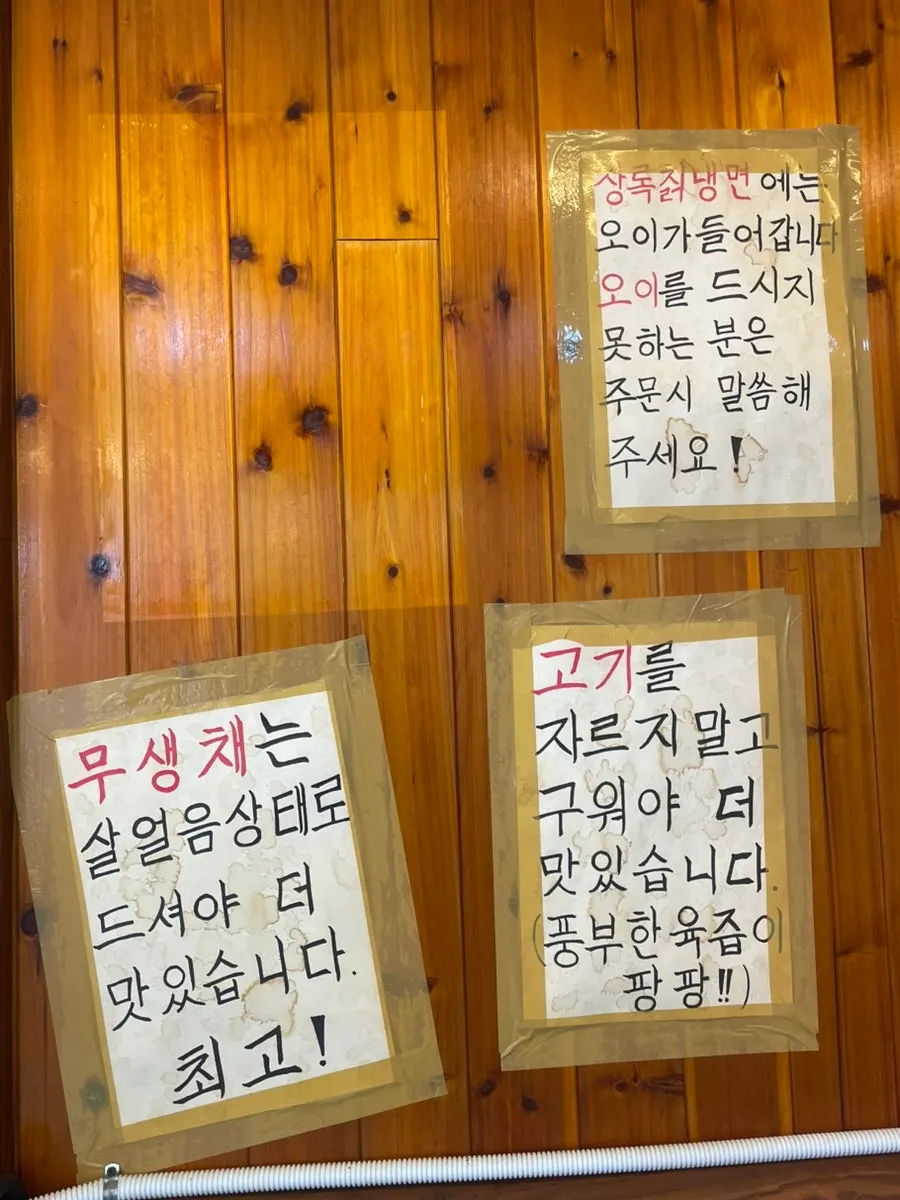 상록칡냉면에는
오이가들어갑니다
오이를 드시지
못하는 분은
주문시 말씀해
주세요!
무생채는
살얼음상태로
드셔야 더
맛있습니다.
최고!
고기를
자르지말고
구워야 더
맛있습니다.
(풍부한육즙이
팡팡!!)